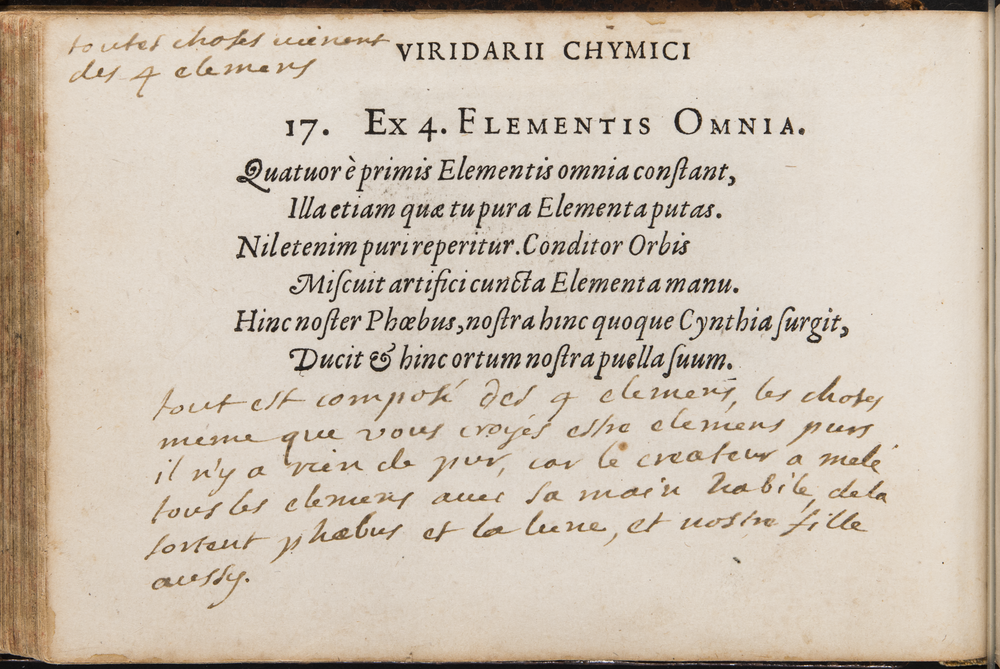 toutes choses vienent
des 4 elemens
VIRIDARII CHYMICI
17. EX 4. ELEMENTIS OMNIA.
Quatuor è primis Elementis omnia conſtant,
Illa etiam quæ tu pura Elementa putas.
Nil etenim puri reperitur. Conditor Orbis
Miſcuit artifici cuncta Elementa manu.
Hinc noſter Phœbus, noſtra hinc quoque Cynthia ſurgit,
Ducit & hinc ortum noſtra puella ſuum.
tout est composé des 4 elemens, les choses
meme que vous croyés estre elemens purs
il n'y a rien de pur, car le createur a melé
tous les elemens avec sa main habile, de la
sortent phœbus et la lune, et nostre fille
aussy.